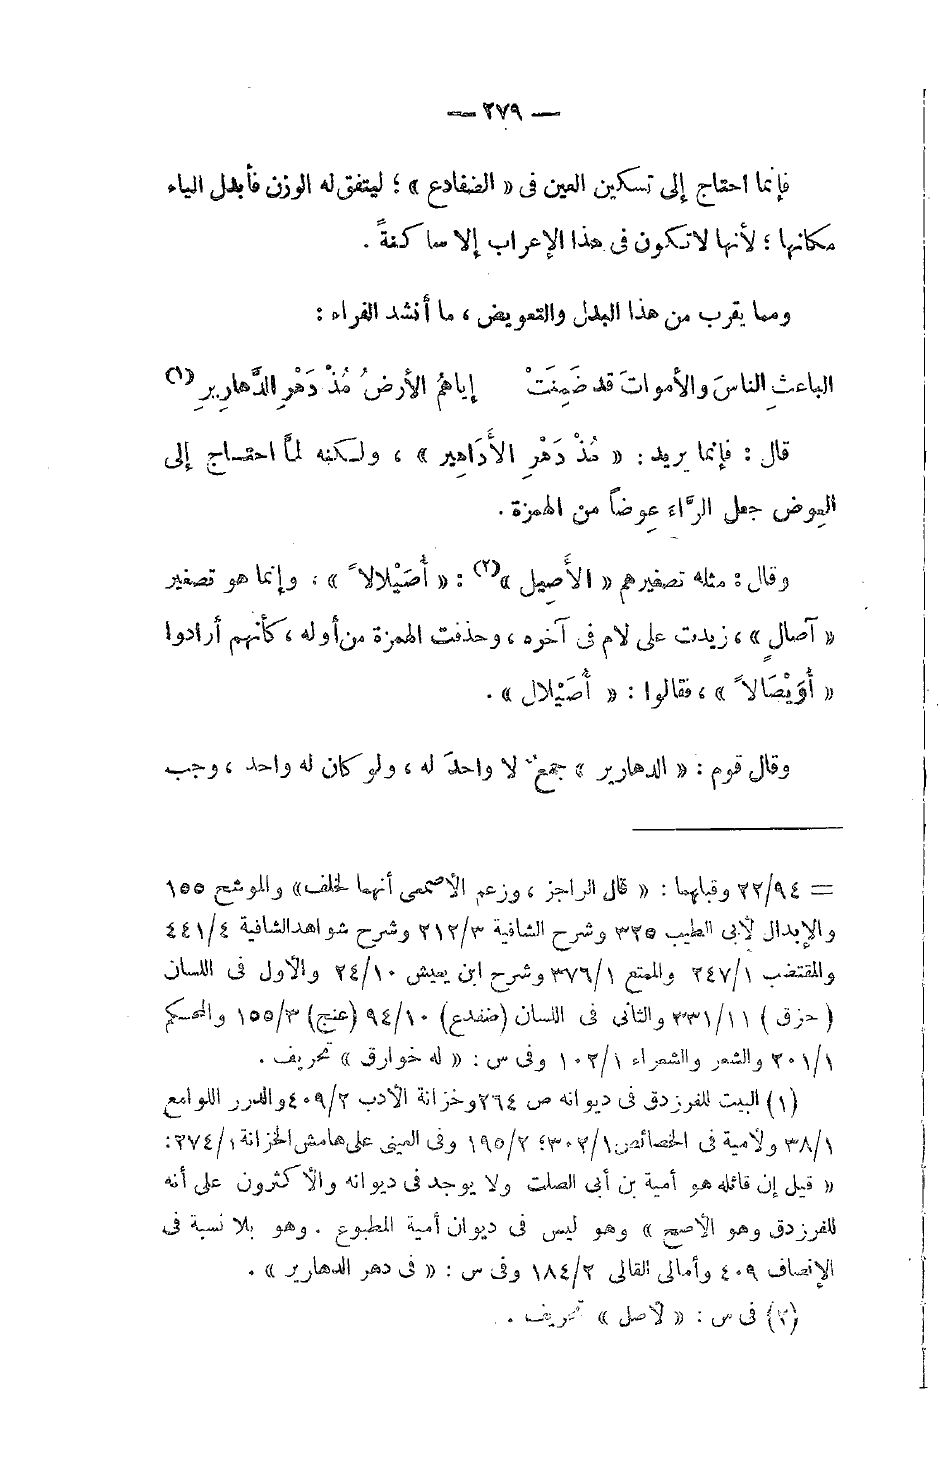 — ٢٧٩ —
فإنما احتاج إلى تسكين العين فى « الضفادع » ؛ ليتفق له الوزن فأبدل الياء
مكانها ؛ لأنها لاتكون فى هذا الإعراب إلا ساكنةً .
ومما يقرب من هذا البدل والتعويض ، ما أنشد الفراء :
الباعثِ الناسَ والأمواتَ قد ضَمِنَتْ إياهمُ الأرضُ مُذْ دَهْرِ الدَّهارِيرِ (١)
قال : فإنما يريد : « مُذْ دَهْرِ الأَدَاهِيرِ » ، ولكنه لمَّا احتاج إلى
العِوض جعل الرَّاءَ عِوضاً من الهمزة .
وقال : مثله تصغيرهم « الأَصِيل »(٢) : « أُصَيْلالاً » ، وإنما هو تصغير
« آصالٍ » ، زيدت على لام فى آخره ، وحذفت الهمزة من أوله ، كأنهم أرادوا
« أُوَيْصَالاً » ، فقالوا : « أُصَيْلال » .
وقال قوم : « الدهارير » جمعٌ لا واحدَ له ، ولو كان له واحد ، وجب
= ٢٢/٩٤ وقبلهما : « قال الراجز ، وزعم الأصمعى أنهما لخلف » والموشح ١٥٥
والإبدال لأبى الطيب ٣٢٥ وشرح الشافية ٢١٢/٣ وشرح شواهد الشافية ٤٤١/٤
والمقتضب ٢٤٧/١ والممتع ٣٧٦/١ وشرح ابن يعيش ٢٤/١٠ والأول فى اللسان
( حزق ) ٣٣١/١١ والثانى فى اللسان (ضفدع) ٩٤/١٠ (عنج) ١٥٥/٣ والمحكم
٢٠١/١ والشعر والشعراء ١٠٢/١ وفى س : « له خوارق » تحريف .
(١) البيت للفرزدق فى ديوانه ص ٢٦٤ وخزانة الأدب ٤٠٩/٢ والدرر اللوامع
٣٨/١ ولأمية فى الخصائص ٣٠٢/١؛ ١٩٥/٢ وفى العينى على هامش الخزانة ٢٧٤/١:
« قيل إن قائله هو أمية بن أبى الصلت ولا يوجد فى ديوانه والأكثرون على أنه
للفرزدق وهو الأصح » وهو ليس فى ديوان أمية المطبوع . وهو بلا نسبة فى
الإنصاف ٤٠٩ وأمالى القالى ١٨٤/٢ وفى س : « فى دهر الدهارير » .
(٢) فى س : « لأصل » تحريف .